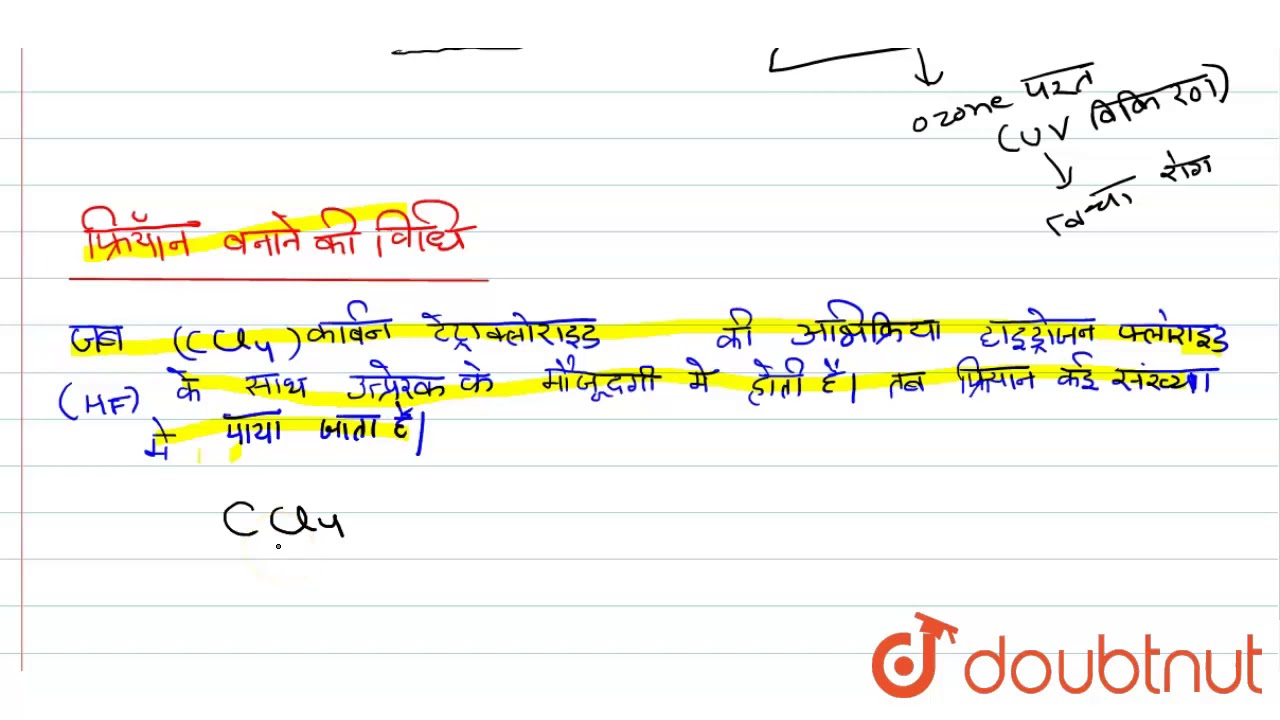 ozone परत
(UV विकिरण)
त्वचा रोग
फ्रियॉन बनाने की विधि
जब (CCl4) कार्बन टेट्राक्लोराइड की अभिक्रिया हाइड्रोजन फ्लोराइड
(HF) के साथ उत्प्रेरक के मौजूदगी मे होती है। तब फ्रियान कई संख्या
मे पाया जाता है।
CCl4
doubtnut